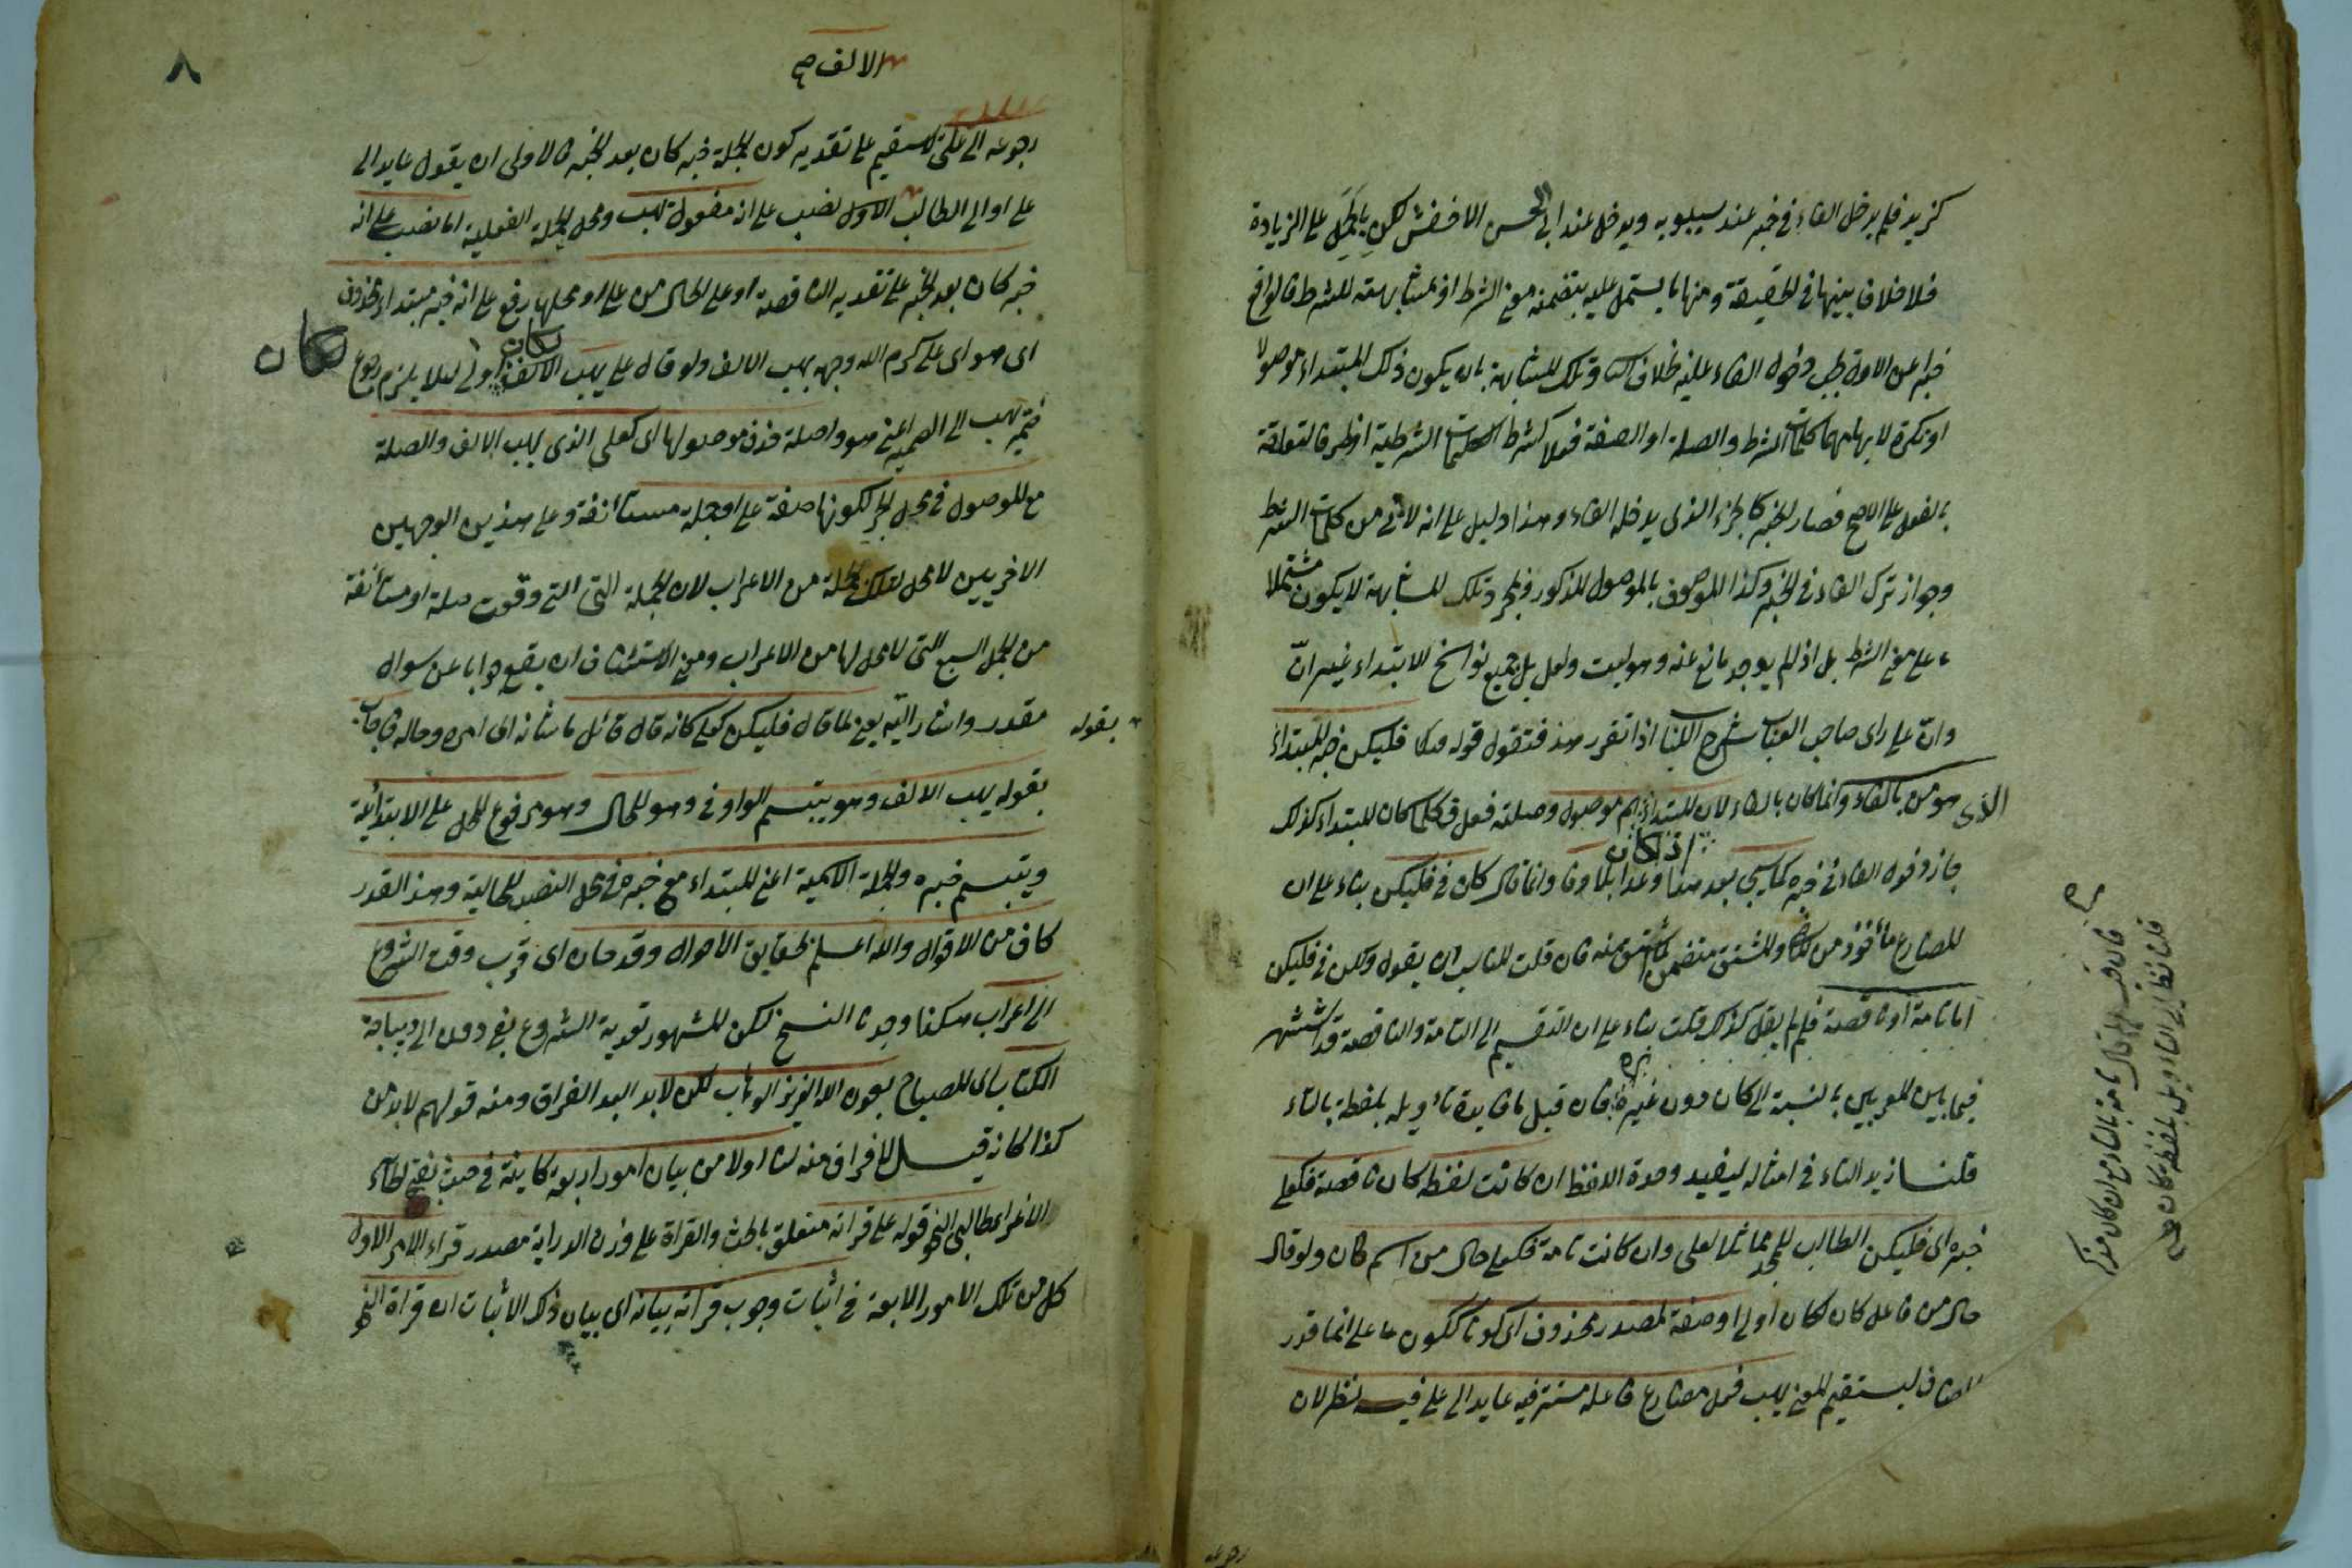 كزيد فلم يدخل الفاء في خبره عند سيبويه ويدخل عند ابي الحسن الاخفش لكن يحمل على الزيادة
فلا خلاف بينهما في الحقيقة ومنها ما يشتمل عليه بتضمنه معنى الشرط او بمشابهته للشرط فالواقع
خبرا عن الاول يجب دخول الفاء عليه بخلاف وتلك المشابهة بان يكون ذلك المبتداء موصولا
او نكرة لابهامهما كلمات الشرط والصلة او الصفة فعلا كشرط الكلمات الشرطية او ظرفا متعلقة
بالفعل على الاصح فصار الخبر كالجزء الذي يدخله الفاء وهذا دليل على انه لا شي من كلمات الشرط
وجواز ترك الفاء في الخبر وكذا الموصوف بالموصول المذكور وتلك المشابهة لا يكون مشتملا
على معنى الشرط بل اذا لم يوجد مانع عنه وهو ليت ولعل بل جميع نواسخ الابتداء غير انّ
وانّ على راى صاحب اللباب اذا تقرر هذا فتقول قوله فليكن خبر المبتداء
الذي هو من بالفاء وانما كان بالفاء لان المبتداء اسم موصول وصلته فعل وكلما كان المبتداء كذلك
جاز دخول الفاء في خبره كما سيجي بعد اذ كان وانما قال كان في فليكن بناء على ان
المضارع مأخوذ من والمشتق متضمن منه فان قلت المناسب ان يقول وكان في فليكن
اما تامة او ناقصة فلم لم يقل كذلك قلت بناء على ان التقسيم الى التامة والناقصة قد اشتهر
فيما بين المعربين بالنسبة الى كان دون غيره فان قيل ما فايدة تأويله بلفظة بالتاء
قلنا زيد التاء في امثاله ليفيد وحدة اللفظ ان كانت لفظة كان ناقصة فكعلي
خبره اى فليكن الطالب للمجد مماثلا لعلي وان كانت تامة فكعلي حال من اسم كان ولو قال
حال من فاعل كان لكان اولى او صفة لمصدر محذوف اى كونا ككون على انما قدر
المضاف ليستقيم المعنى يهب فعل مضارع فاعله مستتر فيه عايد الى علي فيه نظر لان
رجوعه
فان قيل لم قال تامة بالتاء مع ان كان مذكر
قلنا نظرا الى التاويل بلفظة كان
٨
الالف
رجوعه الى علي لا يستقيم على تقدير كون الجملة خبر كان بعد الخبر فالاولى ان يقول عايد الى
علي او الى الطالب الاول نصب على انه مفعول يهب ومحل الجملة الفعلية اما نصب على انه
خبر كان بعد الخبر على تقدير الناقصة او على الحال من علي او محلها رفع على انه خبر مبتداء محذوف
اى هو اى علي كرم الله وجهه يهب الالف ولو قال علي يهب الالف لكان اولى لئلا يلزم رجوع
ضمير يهب الى الضمير اعني هو او صلة حذف موصولها اى كعلي الذي يهب الالف والصلة
مع الموصول في محل الجر لكونها صفة علي او جملة مستأنفة وعلى هذين الوجهين
الاخريين لا محل لتلك الجملة من الاعراب لان الجملة التي وقعت صلة او مستأنفة
من الجمل السبع التي لا محل لها من الاعراب ومعنى الاستئناف ان يقع جوابا عن سوال
مقدر واشار اليه يعني لما قال فليكن كعلي كانه قال قائل ما شانه اى امره وحاله فاجاب
بقوله
بقوله يهب الالف وهو يبتسم الواو في وهو للحال وهو مرفوع المحل على الابتدائية
ويبتسم خبره والجملة الاسمية اعني المبتداء مع خبره في محل النصب للحالية وهذا القدر
كاف من الاقوال والله اعلم بحقايق الاحوال وقد حان اى قرب وقت الشروع
الى اعراب هكذا وجدنا النسخ لكن المشهور تعدية الشروع بفي دون الى ديباجة
الكتاب اى المصباح بعون الله العزيز الوهاب لكن لا بد البد الفراق ومنه قولهم لا بد من
كذا كانه قيل لا فراق منه لنا اولا من بيان امور اربعة كاينة في حث بفتح الحاء
الاغراء طالبي النحو قوله على قرائة متعلق بالحث والقراءة على وزن الدراية مصدر قراء الامر الاول
كل من تلك الامور الاربعة في اثبات وجوب قرائة بيانه اى بيان ذلك الاثبات ان قراءة النحو